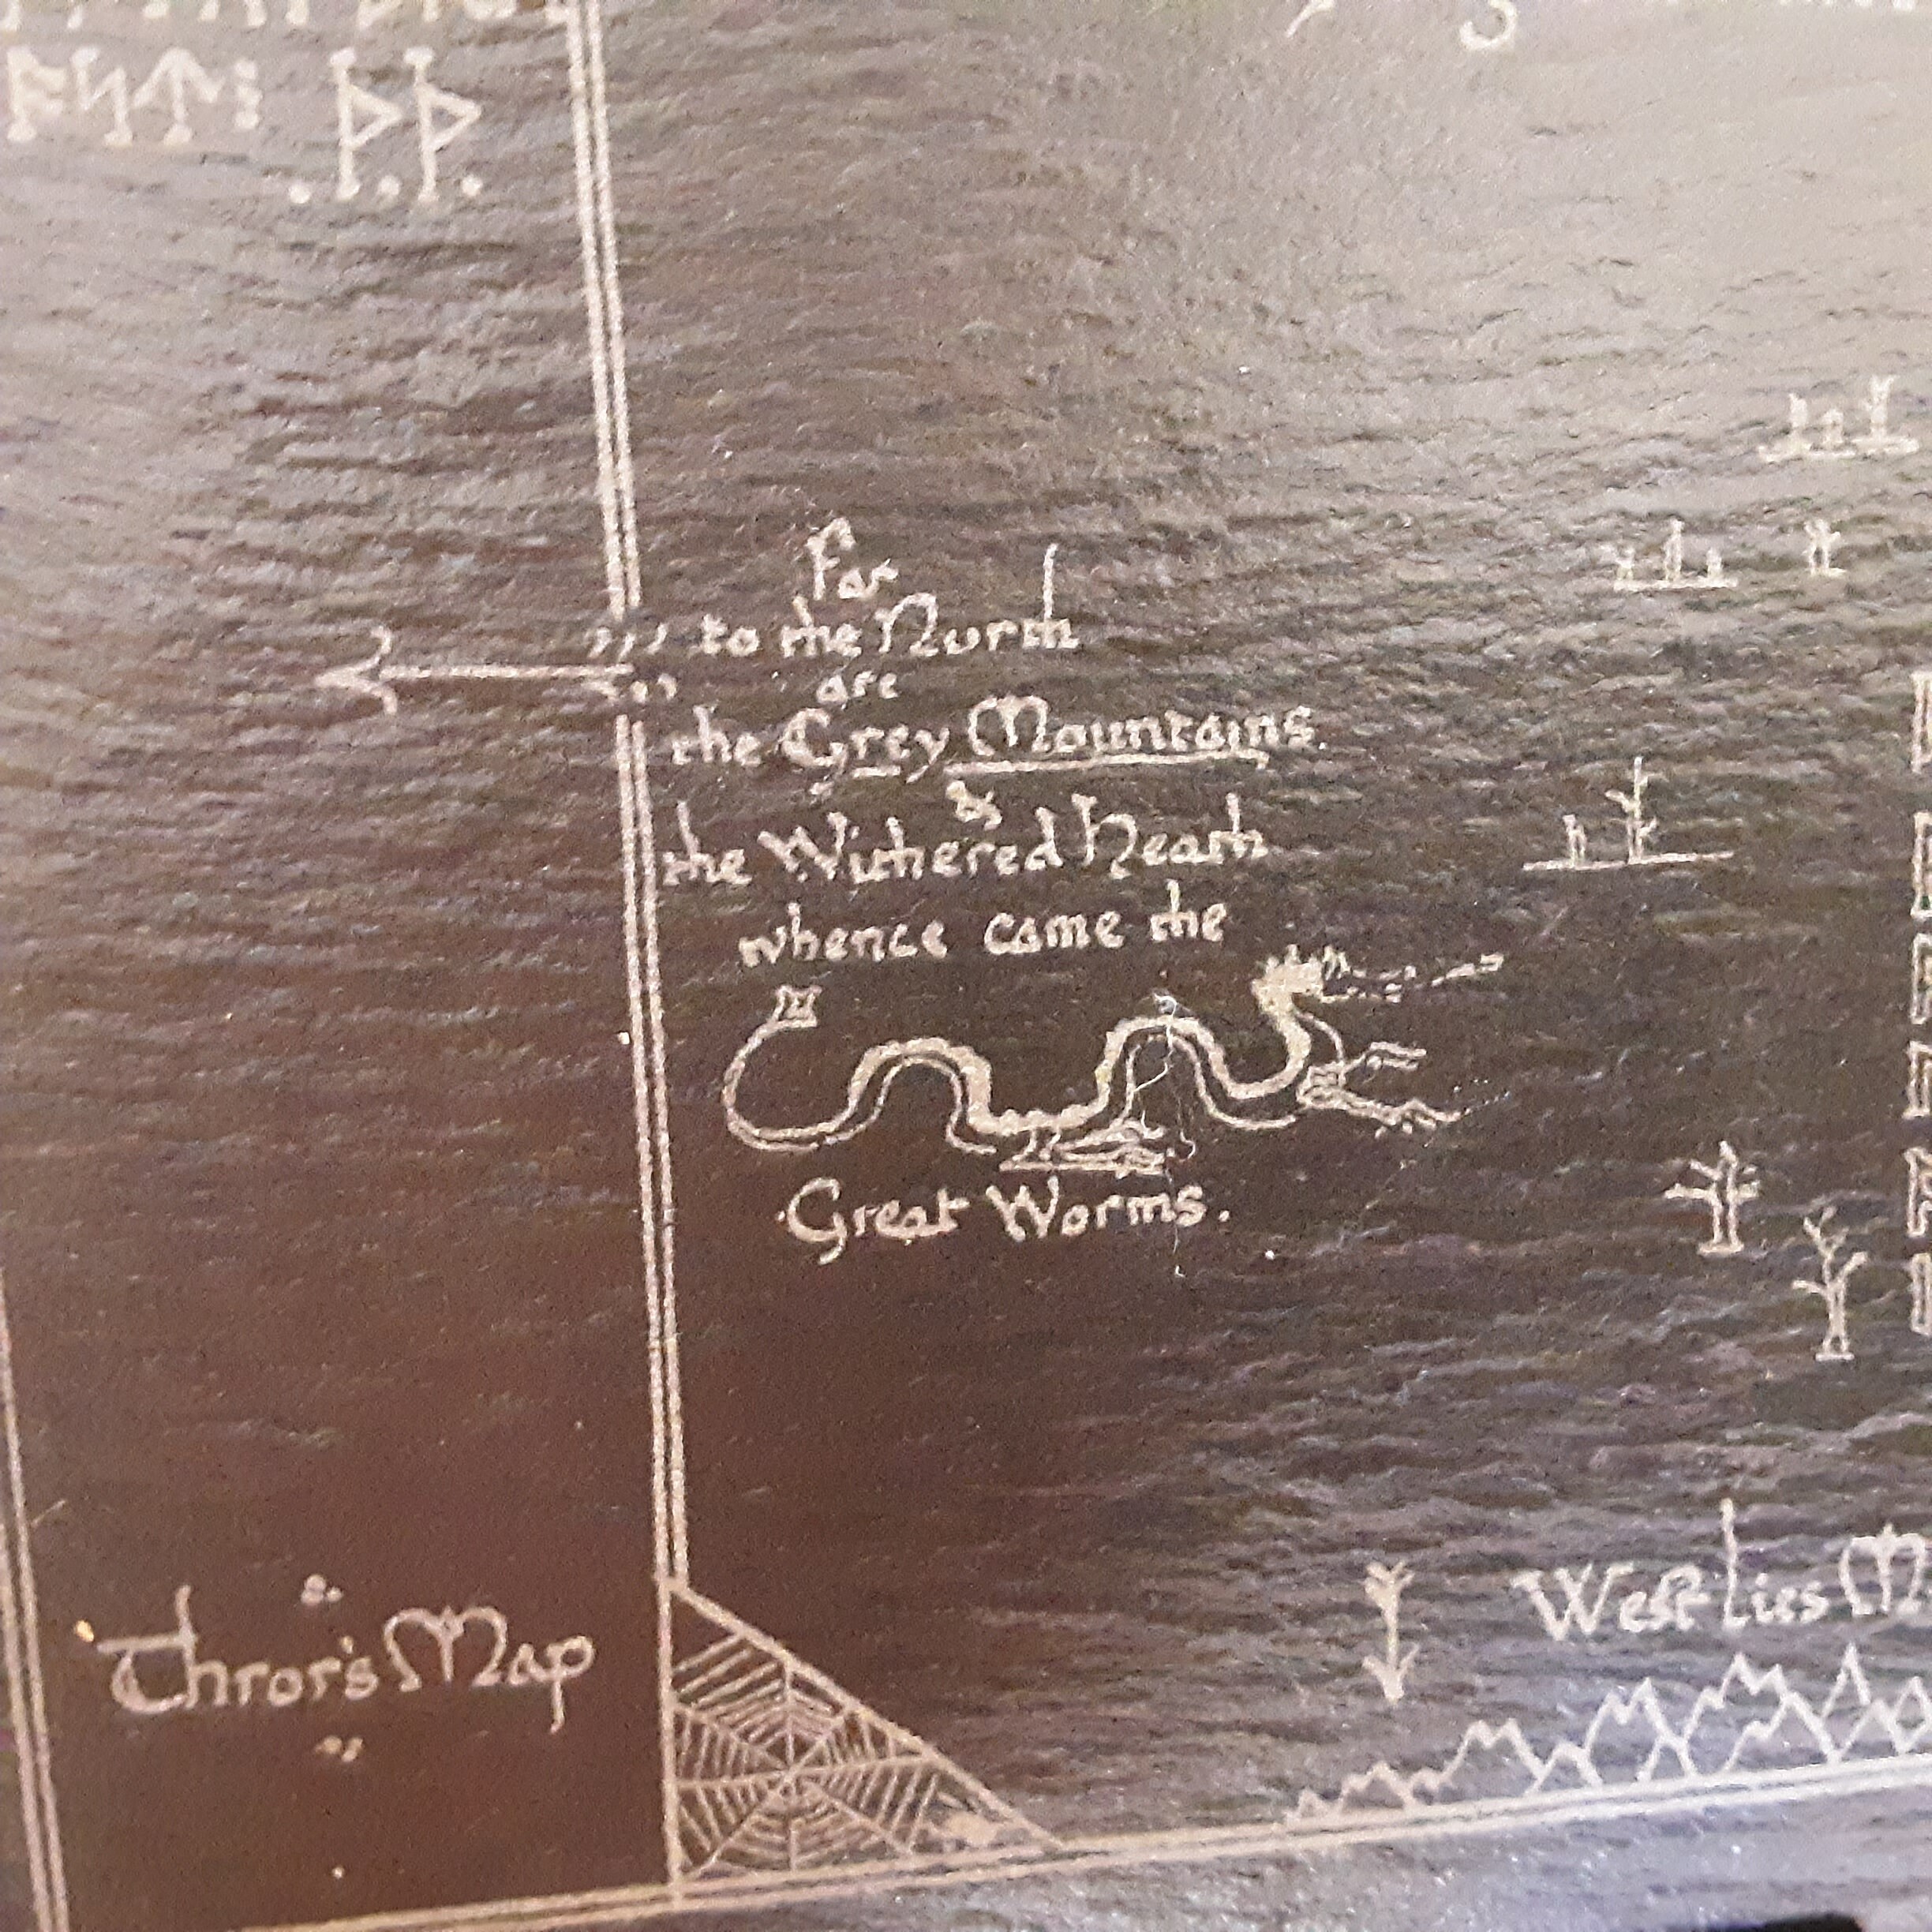 ᚠᛋᛏᛁ ᚦᚦ
Far
to the North
are
the Grey Mountains.
&
the Withered Heath
whence came the
Great Worms.
Thror's Map
West lies M